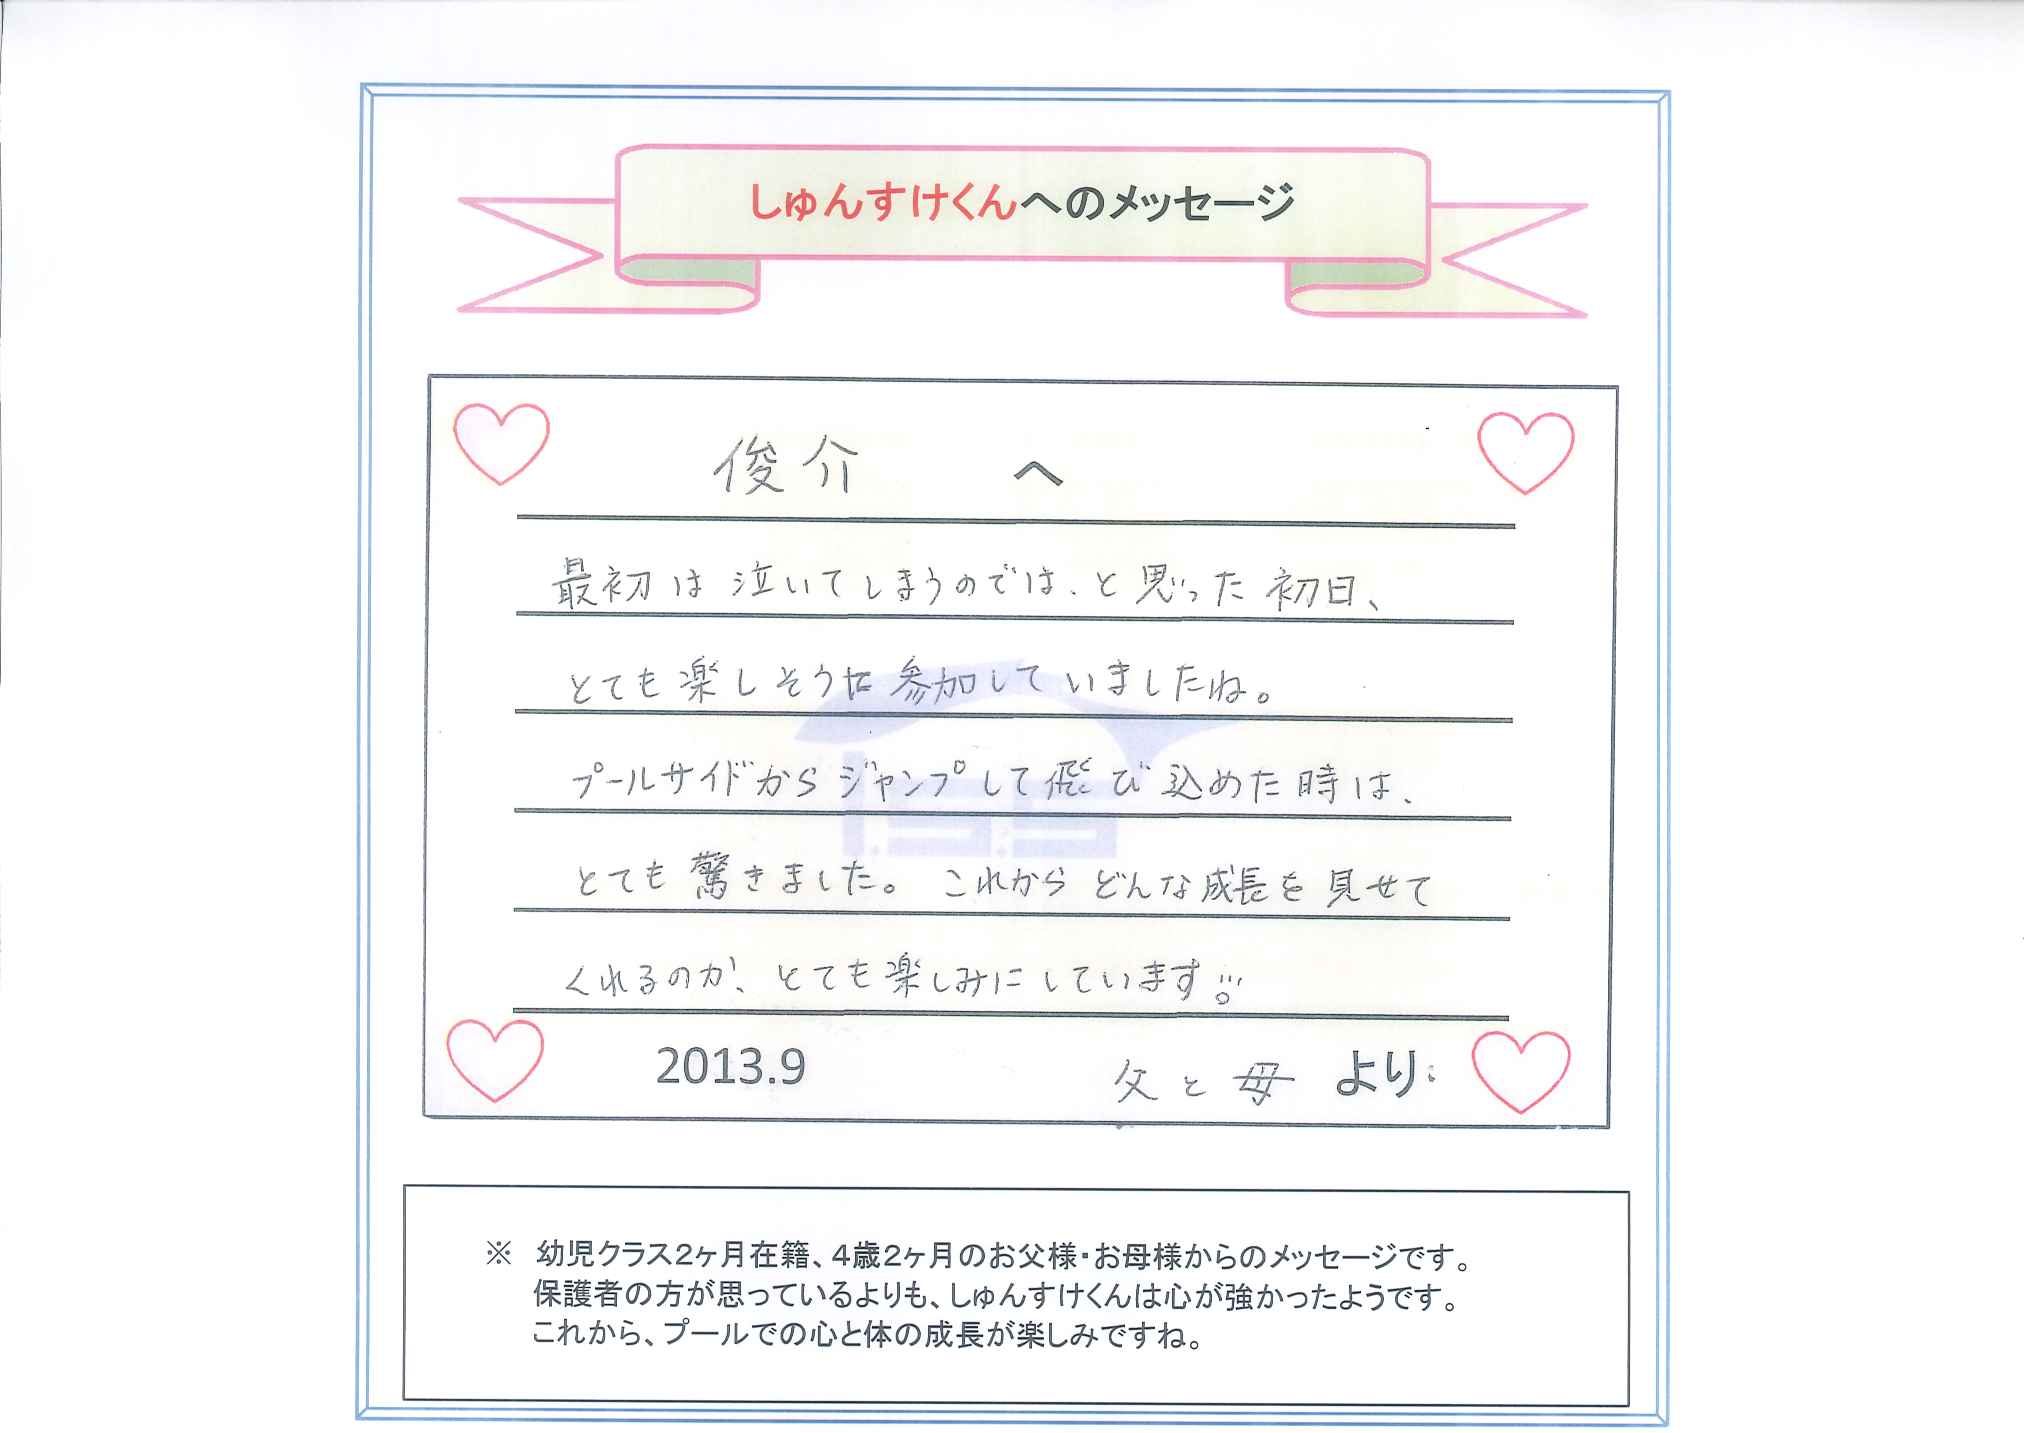 しゅんすけくんへのメッセージ
俊介 へ
最初は泣いてしまうのでは、と思った初日、
とても楽しそうに参加していましたね。
プールサイドからジャンプして飛び込めた時は、
とても驚きました。これからどんな成長を見せて
くれるのか、とても楽しみにしています!!
2013.9 父と母 より
※ 幼児クラス2ヶ月在籍、4歳2ヶ月のお父様・お母様からのメッセージです。
保護者の方が思っているよりも、しゅんすけくんは心が強かったようです。
これから、プールでの心と体の成長が楽しみですね。